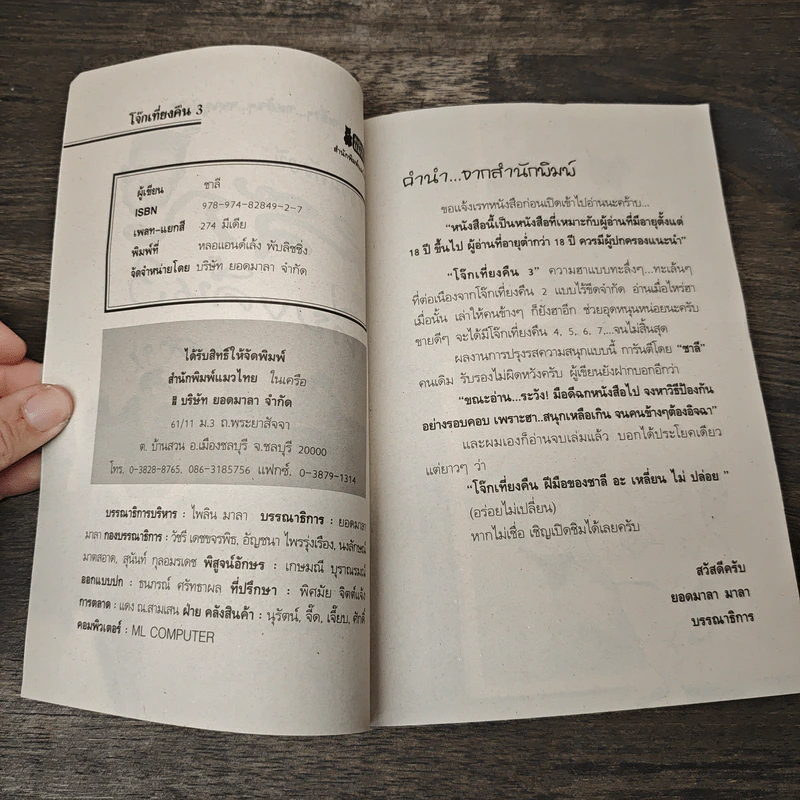 โจ๊กเที่ยงคืน 3
ผู้เขียน ซาลี
ISBN 978-974-82849-2-7
เพลท-แยกสี 274 มีเดีย
พิมพ์ที่ หลอแอนด์เล้ง พับลิชชิ่ง
จัดจำหน่ายโดย บริษัท ยอดมาลา จำกัด
ได้รับสิทธิ์ให้จัดพิมพ์
สำนักพิมพ์แมวไทย ในเครือ
บริษัท ยอดมาลา จำกัด
61/11 ม.3 ถ.พระยาสัจจา
ต. บ้านสวน อ.เมืองชลบุรี จ.ชลบุรี 20000
โทร. 0-3828-8765, 086-3185756 แฟกซ์. 0-3879-1314
บรรณาธิการบริหาร : ไพลิน มาลา บรรณาธิการ : ยอดมาลา
มาลา กองบรรณาธิการ : วัชรี เดชขจรพิธ, อัญชนา ไพรรุ่งเรือง, นงลักษณ์
มาตสอาด, สุนันท์ กุลอมรเดช พิสูจน์อักษร : เกษมณี บุราณรมณ์
ออกแบบปก : ธนภรณ์ ศรัทธาผล ที่ปรึกษา : พิศมัย จิตต์แจ้ง
การตลาด : แดง ณ.สามเสน ฝ่าย คลังสินค้า : นุรัตน์, จี๊ด, เจี๊ยบ, ศักดิ์
คอมพิวเตอร์ : ML COMPUTER
คำนำ...จากสำนักพิมพ์
ขอแจ้งเรทหนังสือก่อนเปิดเข้าไปอ่านนะคร้าบ...
"หนังสือนี้เป็นหนังสือที่เหมาะกับผู้อ่านที่มีอายุตั้งแต่
18 ปี ขึ้นไป ผู้อ่านที่อายุต่ำกว่า 18 ปี ควรมีผู้ปกครองแนะนำ"
"โจ๊กเที่ยงคืน 3" ความฮาแบบทะลึ่งๆ...ทะเล้นๆ
ที่ต่อเนื่องจากโจ๊กเที่ยงคืน 2 แบบไร้ขีดจำกัด อ่านเมื่อไหร่ฮา
เมื่อนั้น เล่าให้คนข้างๆ ก็ยังฮาอีก ช่วยอุดหนุนหน่อยนะครับ
ขายดีๆ จะได้มีโจ๊กเที่ยงคืน 4, 5, 6, 7,...จนไม่สิ้นสุด
ผลงานการปรุงรสความสนุกแบบนี้ การันตีโดย "ซาลี"
คนเดิม รับรองไม่ผิดหวังครับ ผู้เขียนยังฝากบอกอีกว่า
"ขณะอ่าน...ระวัง! มือดีฉกหนังสือไป จงหาวิธีป้องกัน
อย่างรอบคอบ เพราะฮา..สนุกเหลือเกิน จนคนข้างๆต้องอิจฉา"
และผมเองก็อ่านจบเล่มแล้ว บอกได้ประโยคเดียว
แต่ยาวๆ ว่า
"โจ๊กเที่ยงคืน ฝีมือของซาลี อะ เหลี่ยน ไม่ ปล่อย "
(อร่อยไม่เปลี่ยน)
หากไม่เชื่อ เชิญเปิดชิมได้เลยครับ
สวัสดีครับ
ยอดมาลา มาลา
บรรณาธิการ